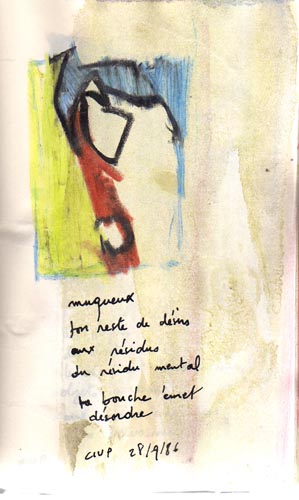 muqueux
ton reste de
aux résidus
du résidu mental
ta bouche émet
désordre
CIUP 28/9/86